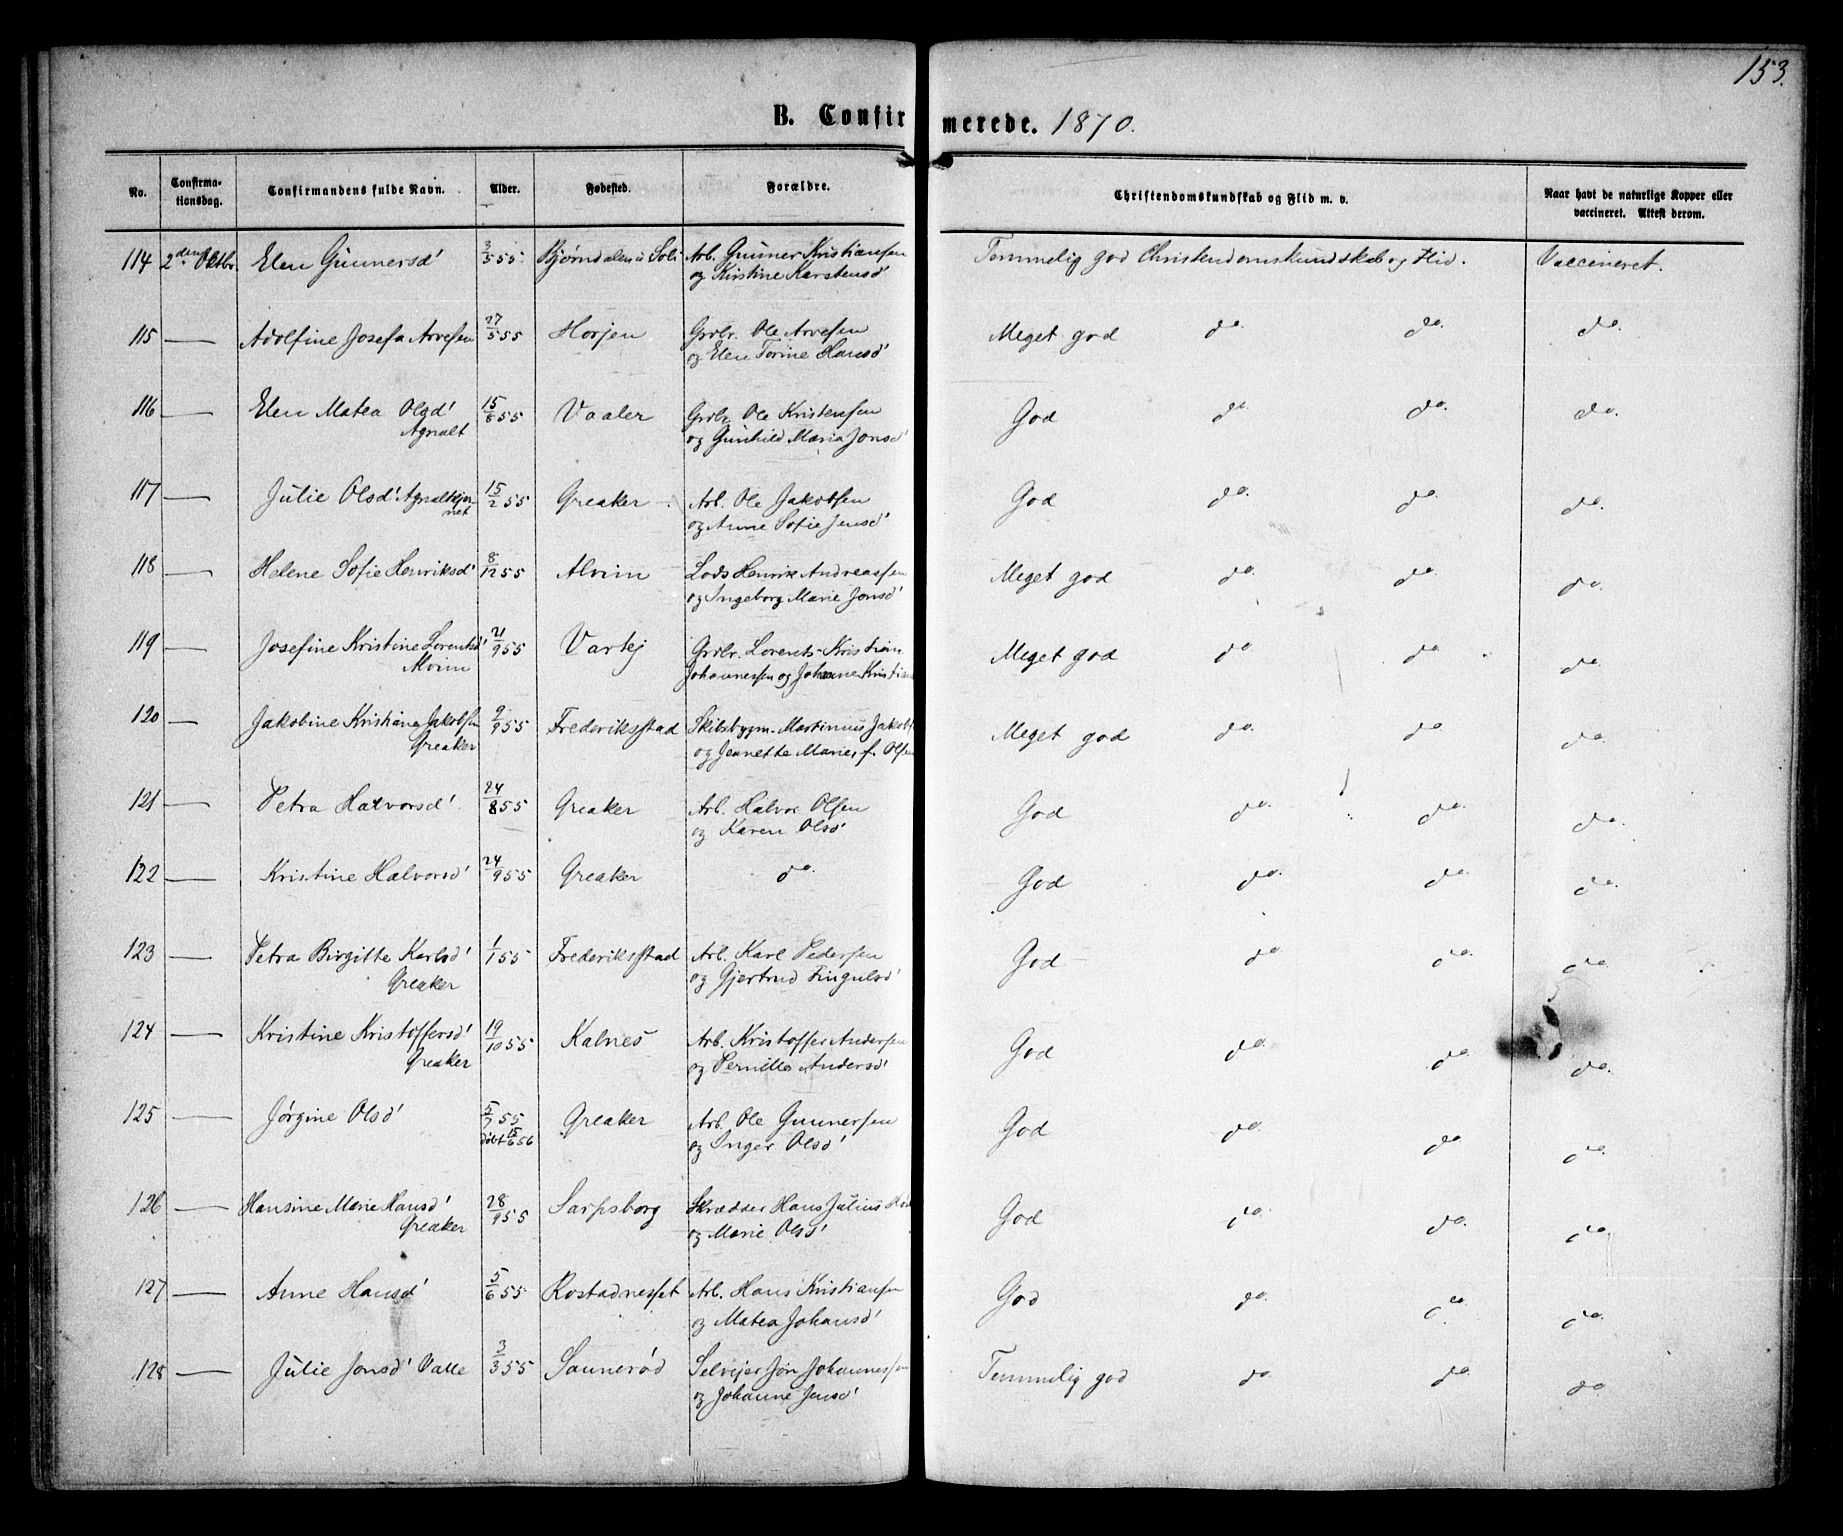 153.
B. Confirmerede. 1870.
No. Confirmationsdag. Confirmandens fulde Navn. Alder. Fødested. Forældre. Christendomskundskab og Flid m. v. Naar havt de naturlige Kopper eller vaccineret. Attest derom.
114 2den Oktbr. Elen Gunnersd' 3/5 55 Bjørndalen i Soli Arb. Gunner Kristiansen Temmelig god Christendomskundskab og Flid. Vaccineret.
og Kristine Karstensd'
115 — Adolfine Josefa Arvesen 27/5 55 Horjen Grdbr. Ole Arvesen Meget god do. do. do.
og Elen Torine Hansd'
116 — Elen Matea Olsd' 15/8 55 Vaaler Grdbr. Ole Kristensen God do. do. do.
Agnalt og Gunhild Maria Jonsd'
117 — Julie Olsd' Agnaltkjer- 15/2 55 Greaker Arb. Ole Jakobsen God do. do. do.
net og Anne Sofie Jensd'
118 — Helene Sofie Henriksd' 8/12 55 Alvim Lods Henrik Andreassen Meget god do. do. do.
og Ingeborg Marie Jonsd'
119 — Josefine Kristine Lorentsd' 21/9 55 Vartej Grdbr. Lorents Kristian Meget god do do. do.
Alvim Johannessen og Johanne Kristians
120 — Jakobine Kristiane Jakobsen 9/9 55 Frederiksstad Skibsbygm. Martinius Jakobs Meget god do. do do.
Greaker og Jeanette Marie f. Olsen
121 — Petra Halvorsd' 24/8 55 Greaker Arb. Halvor Olsen God do. do. do.
og Karen Olsd'
122 — Kristine Halvorsd' 24/9 55 Greaker do. God do. do. do.
123 — Petra Birgitte Karlsd' 1/1 55 Frederiksstad Arb. Karl Pedersen God do do. do.
Greaker og Gjertrud Fingulsd'
124 — Kristine Kristoffersd' 19/10 55 Kalnes Arb. Kristoffer Andersen God do. do. do.
Greaker og Pernille Andersd'
125 — Jørgine Olsd' 5/7 55 Greaker Arb. Ole Gunnersen God do. do. do.
døbt 15/6 56 og Inger Olsd'
126 — Hansine Marie Hansd' 28/9 55 Sarpsborg Skrædder Hans Julius God do. do. do.
Greaker og Marie Olsd'
127 — Anne Hansd' 5/6 55 Rostadnesset Arb. Hans Kristiansen God do. do. do.
og Matea Johansd'
128 — Julie Jonsd' Valle 3/3 55 Sannerød Selvejer Jon Johannessen Temmelig god do. do. do
og Johanne Jensd'